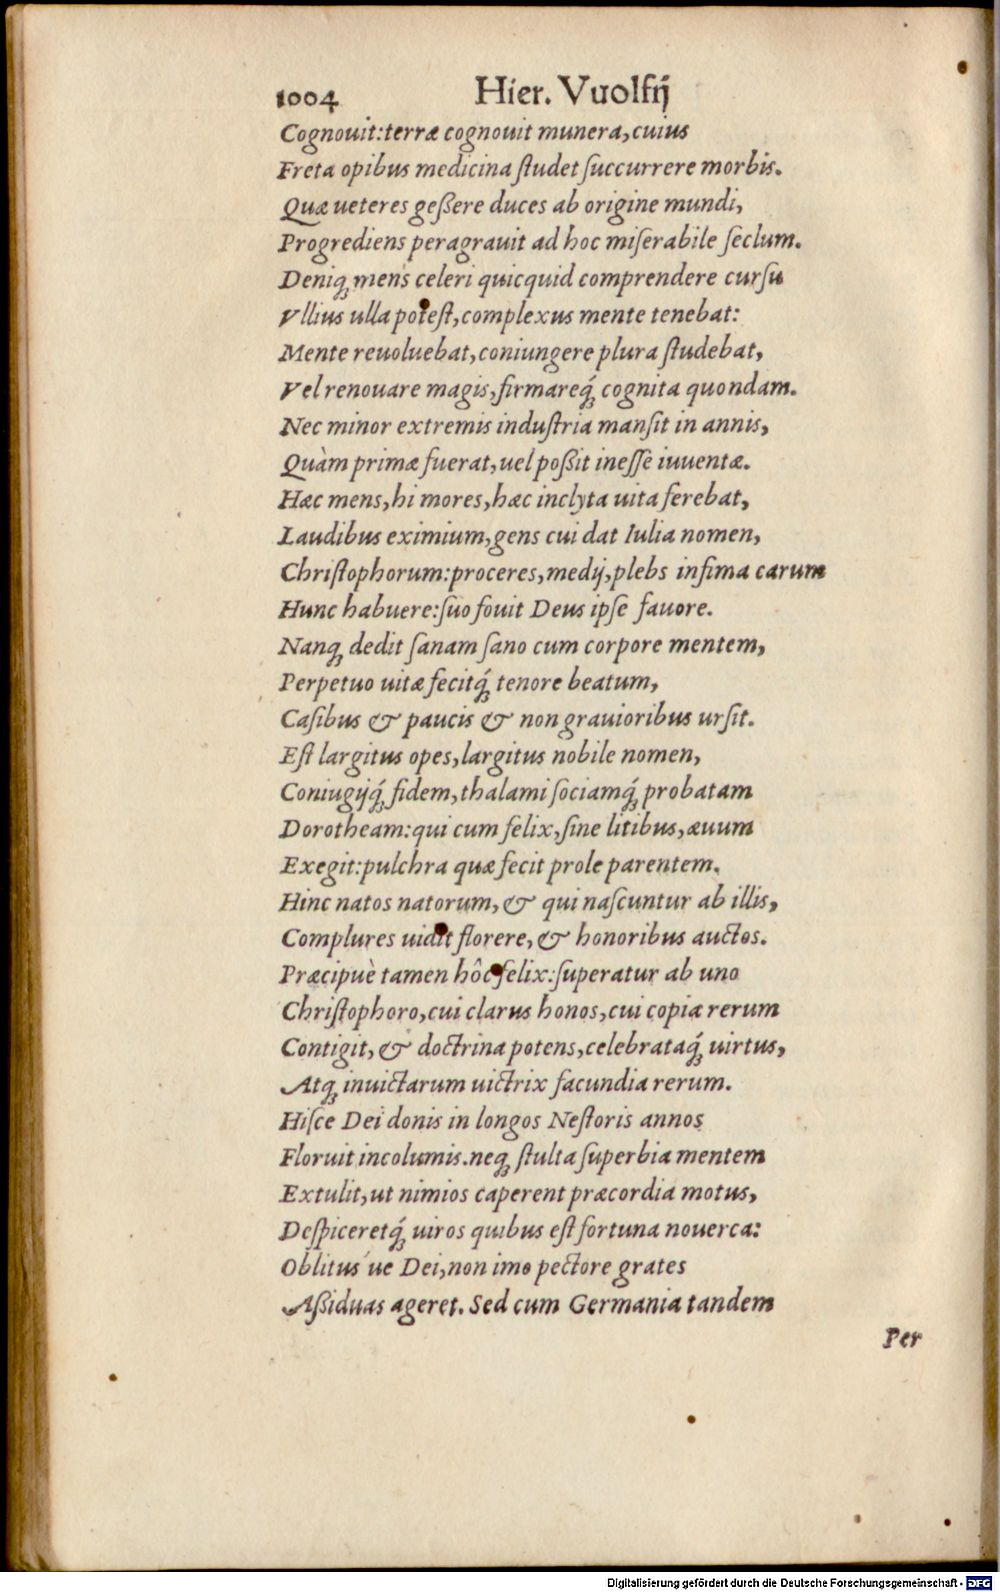 1004 Hier. Vuolfij
Cognouit:terræ cognouit munera,cuius
Freta opibus medicina ſtudet ſuccurrere morbis.
Quæ ueteres geßere duces ab origine mundi,
Progrediens peragrauit ad hoc miſerabile ſeclum.
Deniq; mens celeri quicquid comprendere curſu
Vllius ulla poteſt,complexus mente tenebat:
Mente reuoluebat,coniungere plura ſtudebat,
Vel renouare magis,firmareq́; cognita quondam.
Nec minor extremis induſtria manſit in annis,
Quàm primæ fuerat,uel poßit ineſſe iuuentæ.
Hæc mens,hi mores,hæc inclyta uita ferebat,
Laudibus eximium,gens cui dat Iulia nomen,
Chriſtophorum:proceres,medij,plebs infima carum
Hunc habuere:ſuo fouit Deus ipſe fauore.
Nanq; dedit ſanam ſano cum corpore mentem,
Perpetuo uitæ fecitq́; tenore beatum,
Caſibus & paucis & non grauioribus urſit.
Eſt largitus opes,largitus nobile nomen,
Coniugijq́; fidem,thalami ſociamq́; probatam
Dorotheam:qui cum felix,ſine litibus,æuum
Exegit:pulchra quæ fecit prole parentem.
Hinc natos natorum,& qui naſcuntur ab illis,
Complures uidit florere,& honoribus auctos.
Præcipuè tamen hôc felix:ſuperatur ab uno
Chriſtophoro,cui clarus honos,cui copiæ rerum
Contigit,& doctrina potens,celebrataq́; uirtus,
Atq; inuictarum uictrix facundia rerum.
Hiſce Dei donis in longos Neſtoris annos
Floruit incolumis.neq; ſtulta ſuperbia mentem
Extulit,ut nimios caperent præcordia motus,
Deſpiceretq́; uiros quibus eſt fortuna nouerca:
Oblitus ue Dei,non imo pectore grates
Aßiduas ageret. Sed cum Germania tandem
Per
Digitalisierung gefördert durch die Deutsche Forschungsgemeinschaft - DFG